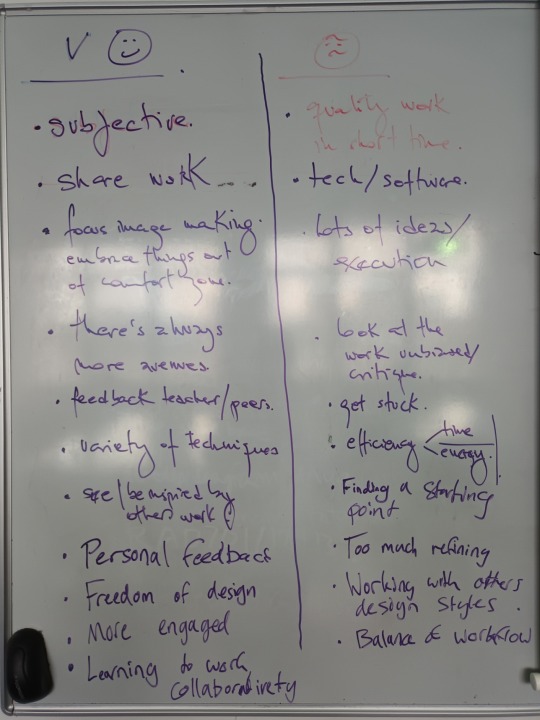 V
• subjective.
• share work....
• focus image making.
embrace things out
of comfort zone.
• there's always
more avenues
• feedback teacher/peers.
• variety of techniques
• see/be inspired by
others work
• Personal feedback
• Freedom of design
• More engaged
• Learning to work
collaboratively
• quality work
in short time.
• tech/software.
• Lots of ideas/
execution
• look at the
work unbiased/
critique.
• get stuck.
• efficiency < time
energy.
• Finding a starting
point
• Too much refining
• Working with others
design styles.
• Balance & workflow